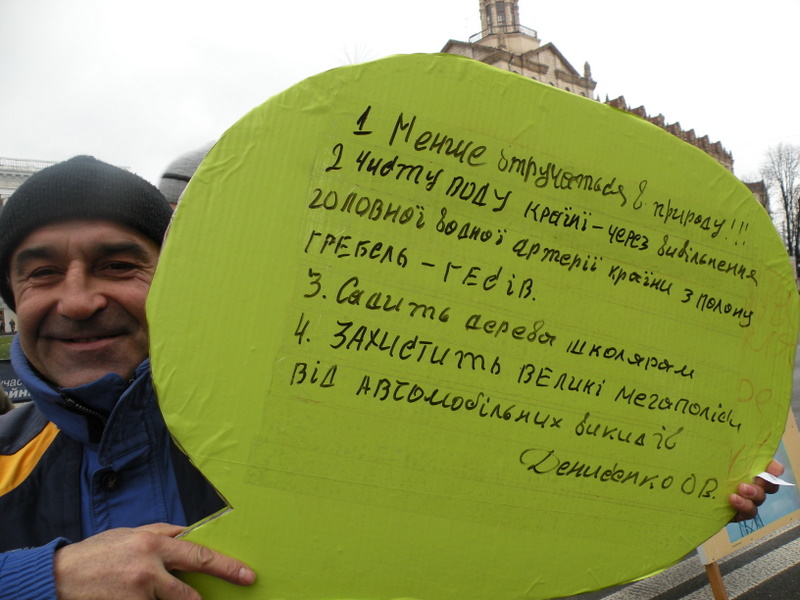 1 Менше втручаться в природу!!!
2 Чисту воду країні - через вивільнення
головної водної артерії країни з полону
гребель - ГЕСів.
3. Садить дерева школярам
4. Захистить великі мегаполіси
від автомобільних викидів
Денисенко О.В.